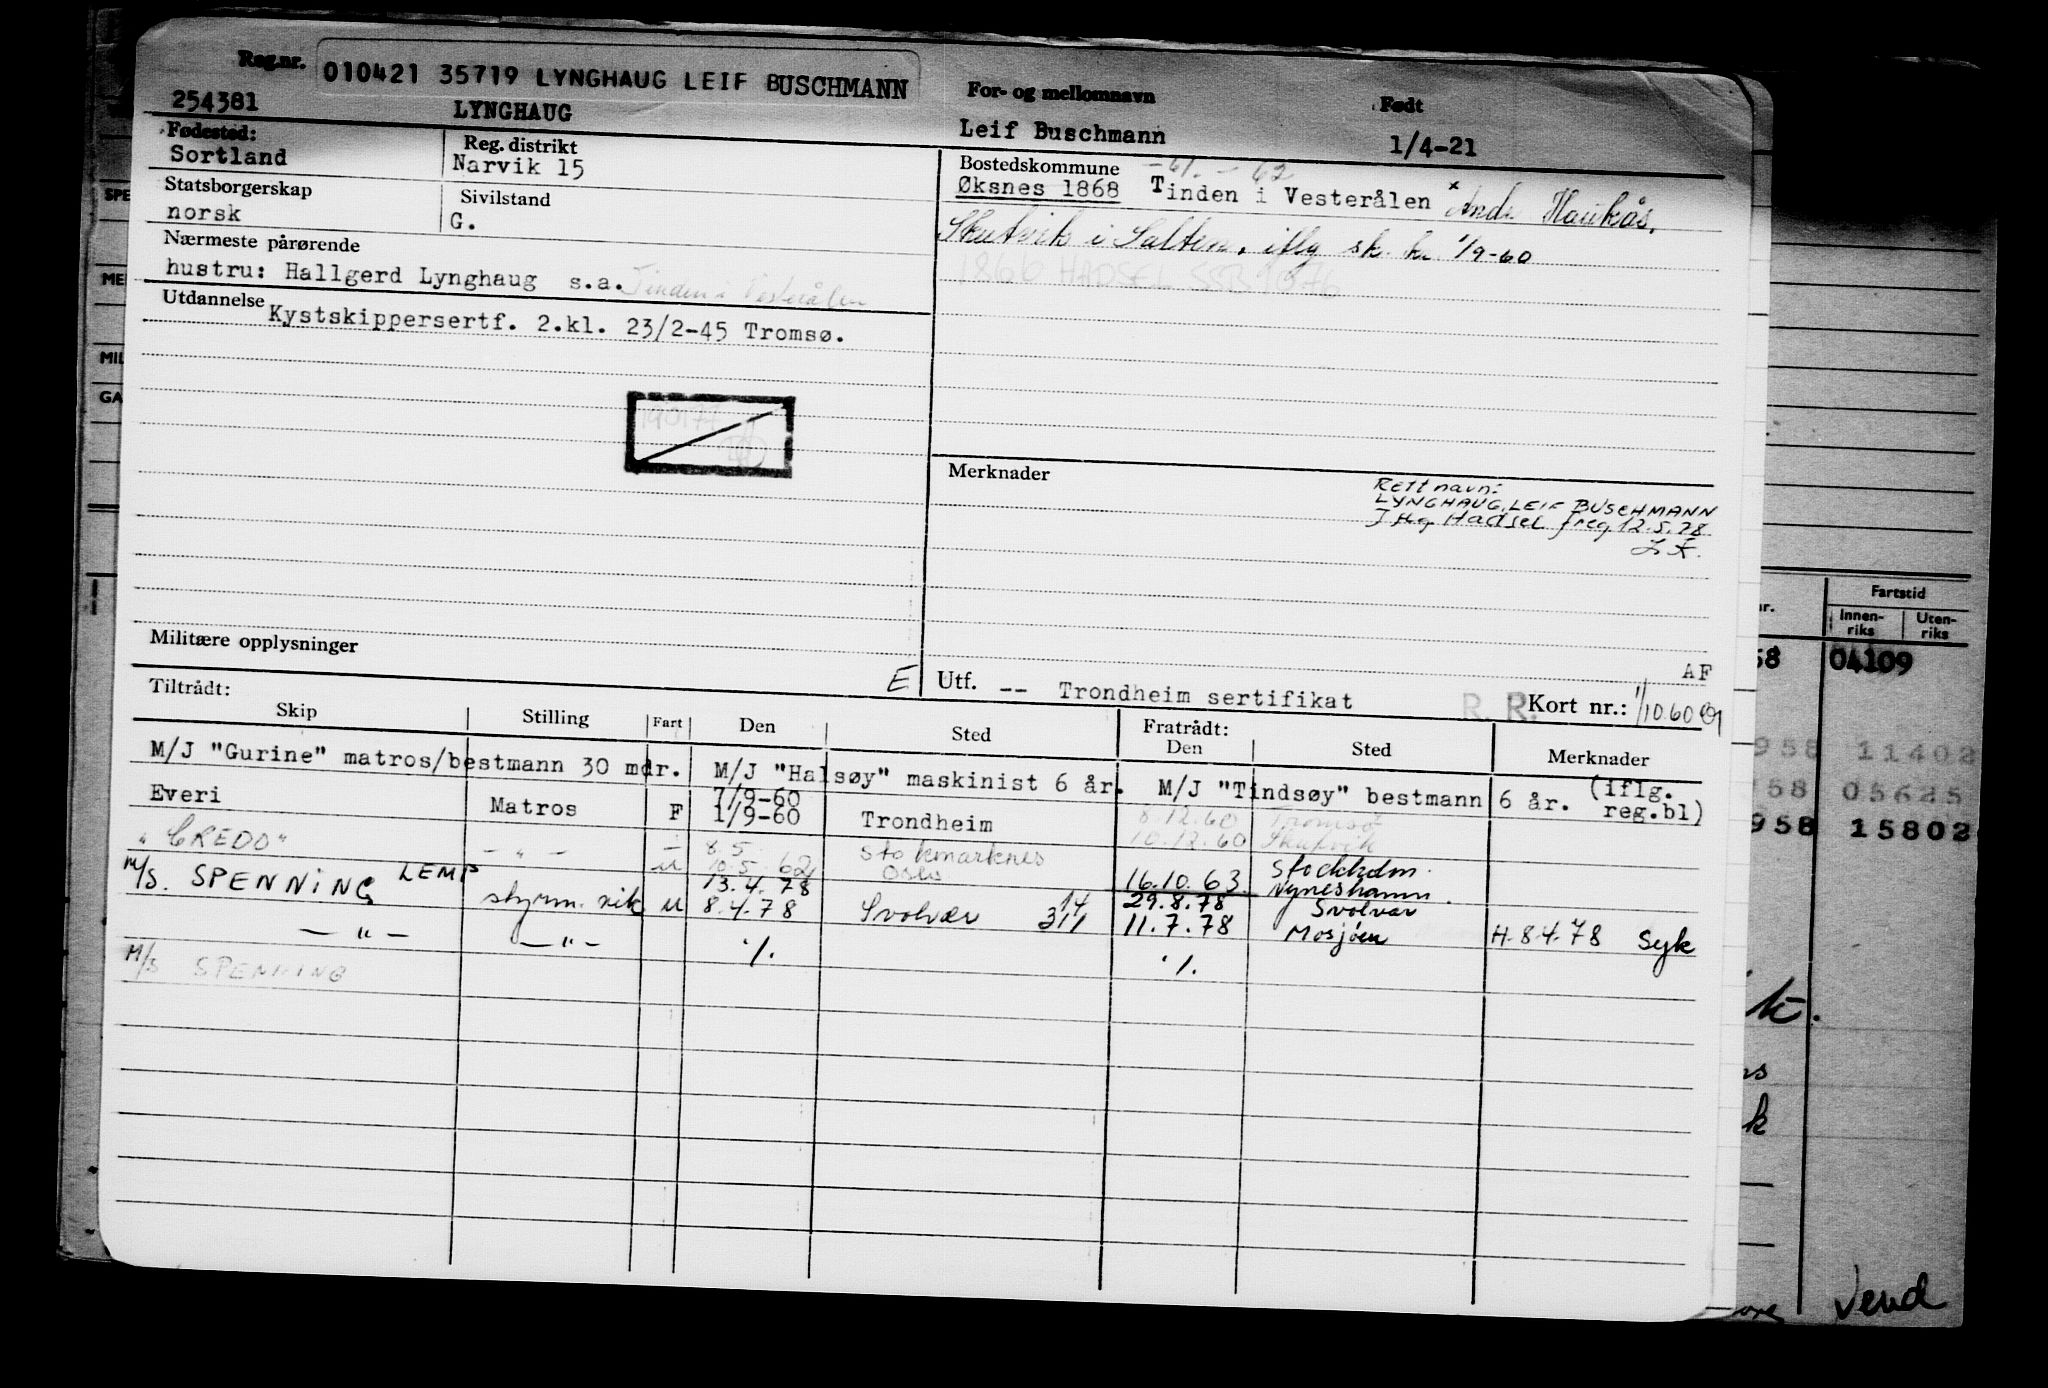 Reg.nr. 010421 35719 LYNGHAUG LEIF BUSCHMANN
For- og mellomnavn
Født
254381
LYNGHAUG
Leif Buschmann
1/4-21
Fødested:
Sortland
Reg. distrikt
Narvik 15
Bostedskommune -61. - 62
Øksnes 1868 Tinden i Vesterålen
Skutvik i Salten, iflg sk. k. 1/9-60
1866 HADSEL SSB 1076
Statsborgerskap
norsk
Sivilstand
G.
Nærmeste pårørende
hustru: Hallgerd Lynghaug s.a. Tinden i Vesterålen
Utdannelse
Kystskippersertf. 2.kl. 23/2-45 Tromsø.
190177
Merknader
Rett navn:
LYNGHAUG, LEIF BUSCHMANN
Iflg Hadsel freg. 12.5.78.
Militære opplysninger
AF
E
Utf. -- Trondheim sertifikat
R. R.
Kort nr.: 1/10.60
Tiltrådt:
Skip
Stilling
Fart
Den
Sted
Fratrådt:
Den
Sted
Merknader
M/J "Gurine" matros/bestmann 30 mdr. M/J "Halsøy" maskinist 6 år. M/J "Tindsøy" bestmann 6 år. (iflg. reg.bl)
Everi Matros F 7/9-60 1/9-60 Trondheim 8.12.60 Tromsø 10.12.60 Skutvik
"CREDO" - " - - 8.5. Stokmarknes
LEMP u 10.5.62 Oslo 16.10.63 Stockholm.
M/S. SPENNING styrm. nik u 13.4.78 8.4.78 Svolvær 14 311 29.8.78 11.7.78 Nyneshamn. Svolvær Mosjøen H. 8.4.78 Syk
- " - - " - ·/. ·/.
M/S SPENNING
Fartstid
Innen-
riks
Uten-
riks
58 04109
958 11402
58 05625
958 15802
k.
k
Vend